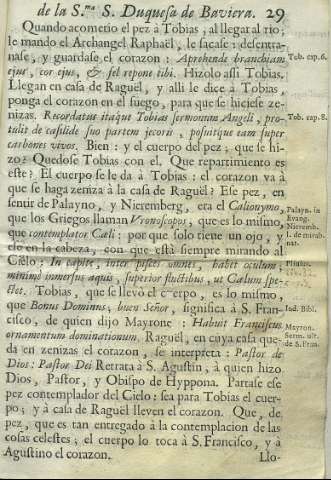 de la S.ma S. Duquesa de Baviera. 29
Quando acometio el pez à Tobias, al llegar al rio;
le mando el Archangel Raphaël, le sacase: desentra-
ñase, y guardase el corazon: Aprehende branchiam
ejus, cor ejus, & fel repone tibi. Hizolo assi Tobias.
Tob. cap. 6.
Llegan en casa de Raguël, y alli le dice à Tobias,
ponga el corazon en el fuego, para que se hiciese ze-
nizas. Recordatus itaque Tobias sermonum Angeli, pro-
Tob. cap. 8.
tulit de casilide suo partem jecoris, posuitque eam super
carbones vivos. Bien: y el cuerpo del pez; que se hi-
zo? Quedose Tobias con el. Que repartimiento es
este? El cuerpo se le da à Tobias: el corazon va à
que se haga zeniza à la casa de Raguël? Ese pez, en
sentir de Palayno, y Nieremberg, era el Calionymo,
que los Griegos llaman Vronoscopus; que es lo mismo,
que contemplator Cæli: por que solo tiene un ojo, y
Palayn. in
Evang.
Nieremb.
l. de mirab.
nat.
ese en la cabeza, con que està siempre mirando al
Cielo: In capite, inter pisces omnes, habet oculum:
minimè inmersus aquis, superior fluctibus, ut Cælum spe-
ctet. Tobias, que se llevò el cuerpo, es lo mismo,
que Bonus Dominus, buen Señor, significa à S. Fran-
Ind. Bibl.
cisco, de quien dijo Mayrone: Habuit Franciscus
ornamentum dominationum. Raguël, en cuya casa que-
Mayron.
Serm. ult.
de S. Fran.
da en zenizas el corazon, se interpreta: Pastor de
Dios: Pastor Dei Retrata à S. Agustin, à quien hizo
Dios, Pastor, y Obispo de Hyppona. Partase ese
pez contemplador del Cielo: sea para Tobias el cuer-
po; y à casa de Raguël lleven el corazon. Que, de
pez, que es tan entregado à la contemplacion de las
cosas celestes; el cuerpo lo toca à S. Francisco, y à
Agustino el corazon.
Llo-